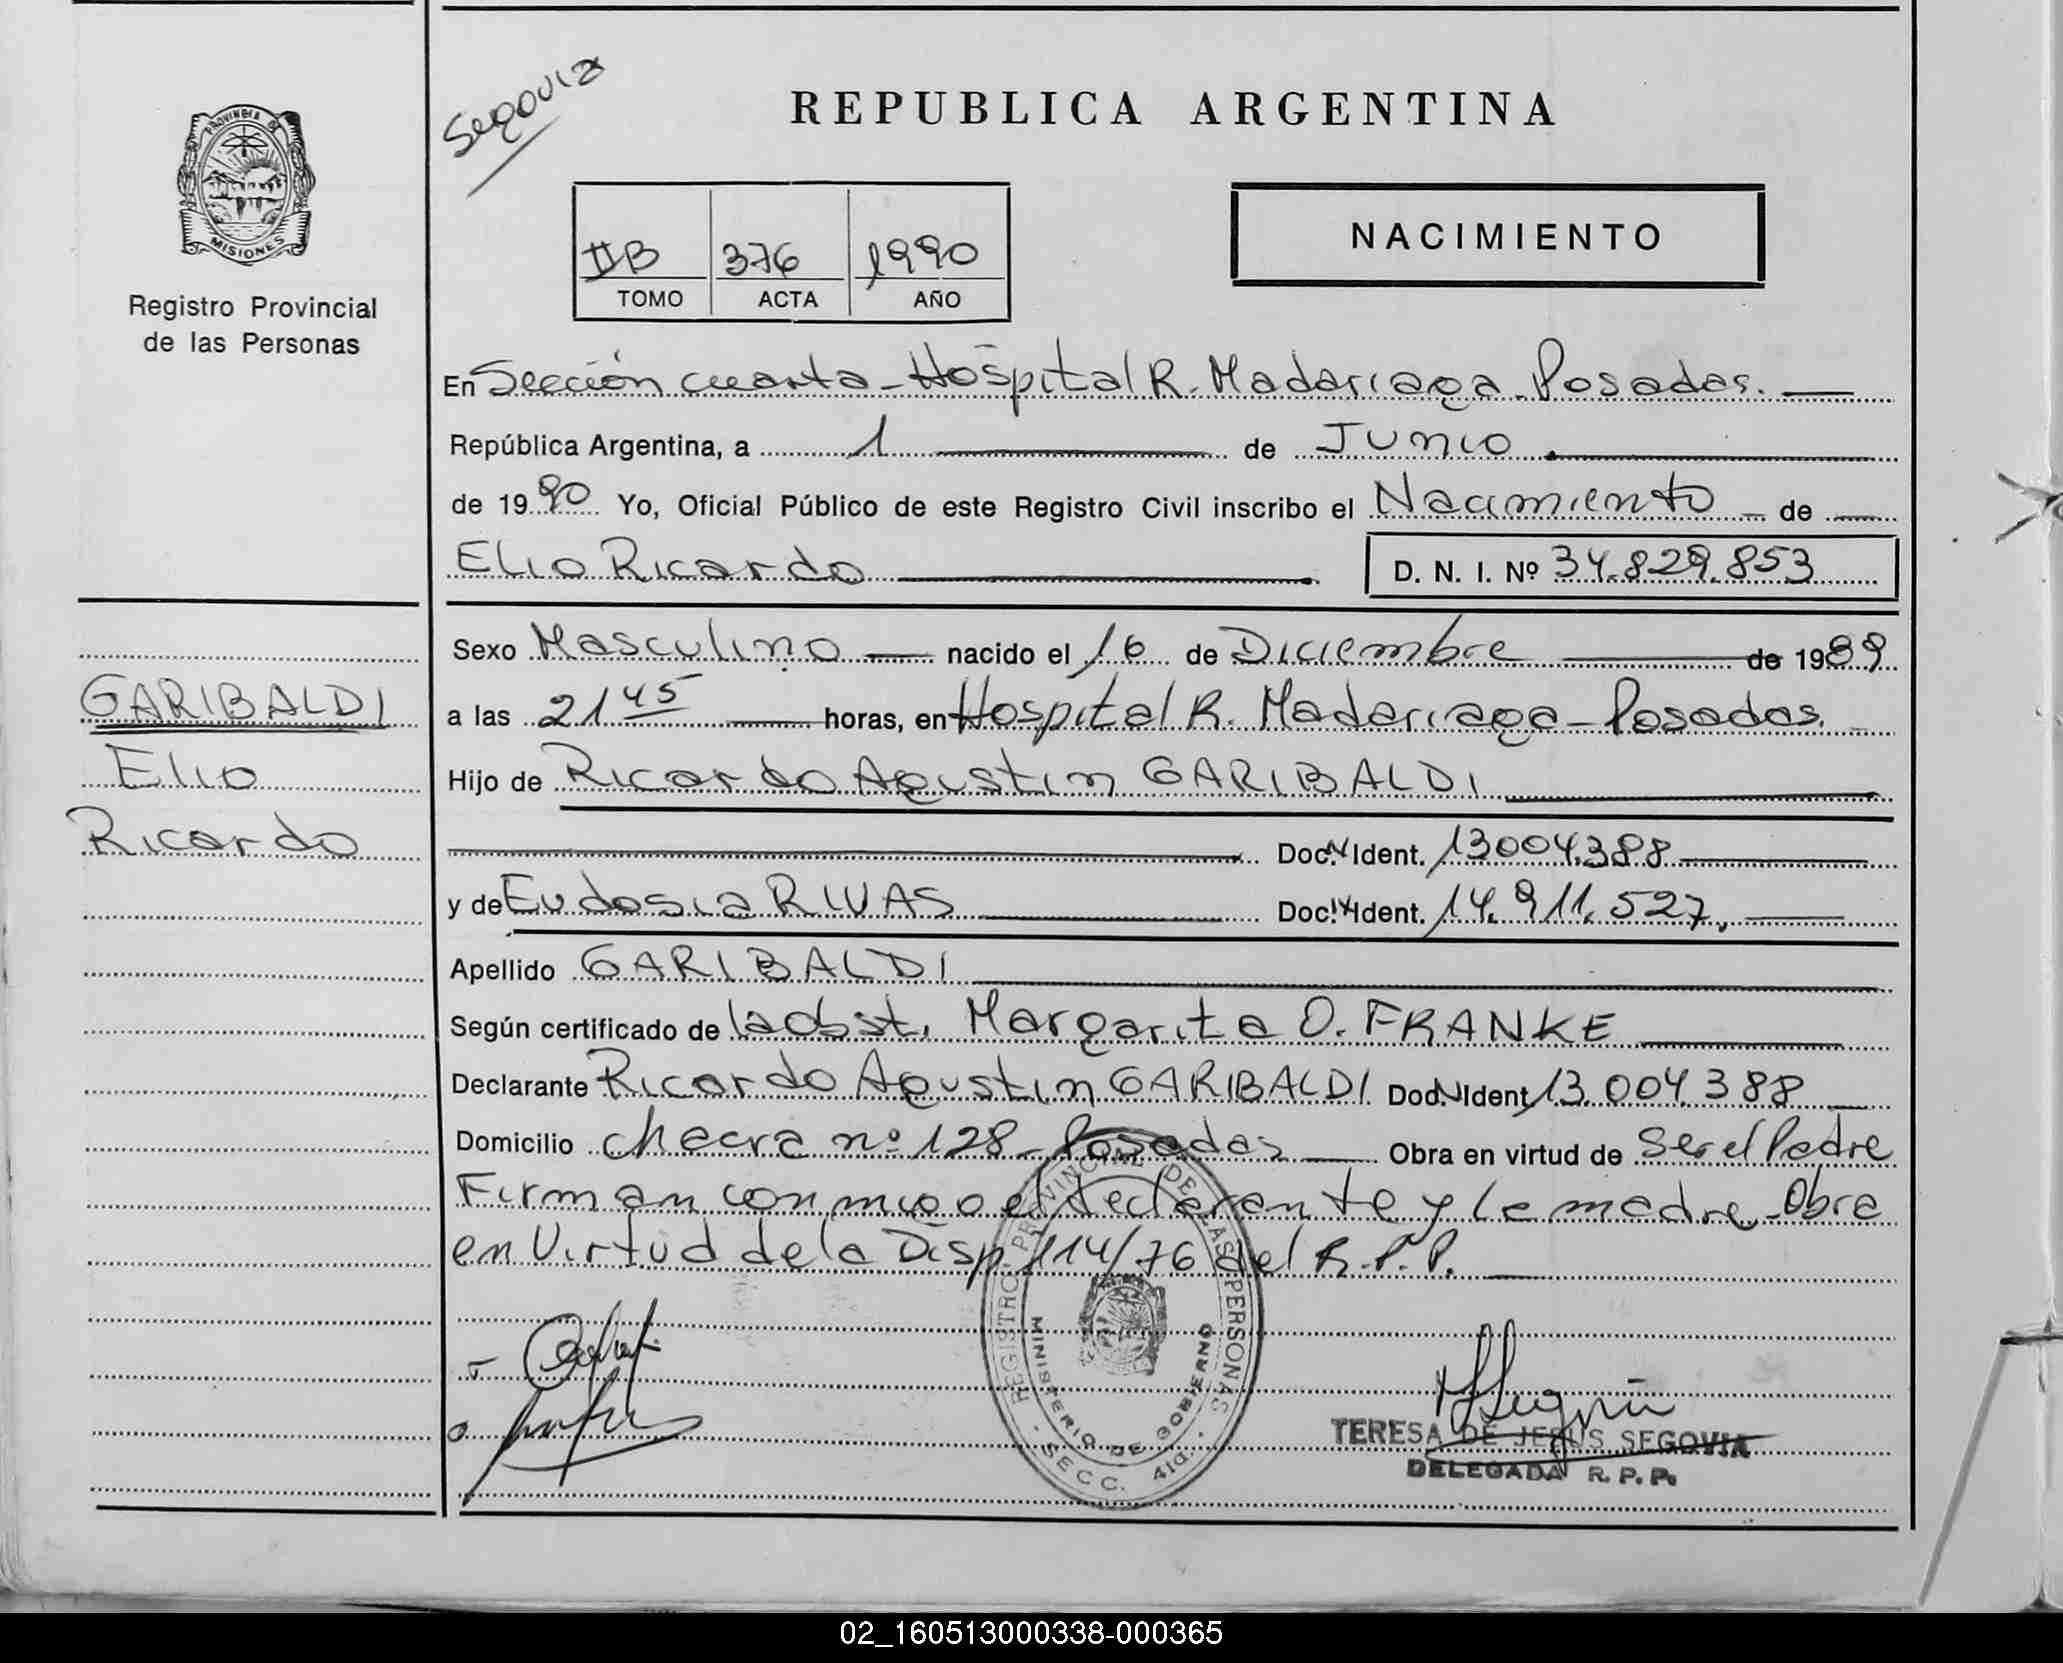 Segovia
REPUBLICA ARGENTINA
PROVINCIA DE
MISIONES
Registro Provincial
de las Personas
IIB 376 1990
TOMO ACTA AÑO
NACIMIENTO
En Sección cuarta - Hospital R. Madariaga - Posadas.
República Argentina, a 1 de Junio
de 1990 Yo, Oficial Público de este Registro Civil inscribo el Nacimiento de
Elio Ricardo D. N. I. Nº 34.829.853
Sexo Masculino nacido el 16 de Diciembre de 1989
GARIBALDI
Elio
Ricardo
a las 21 45 horas, en Hospital R. Madariaga - Posadas.
Hijo de Ricardo Agustin GARIBALDI
Doc. N Ident. 13004.388
y de Eudosia RIVAS Doc. N Ident. 14.911.527
Apellido GARIBALDI
Según certificado de la obst. Margarita O. FRANKE
Declarante Ricardo Agustin GARIBALDI Doc. N Ident 13.004.388
Domicilio chacra nº 128 - Posadas Obra en virtud de Ser el Padre
Firman conmigo el declarante y la madre - Obra
en Virtud de la Disp. 114/76 del R.P.P.
REGISTRO PROVINCIAL DE LAS PERSONAS
MINISTERIO DE GOBIERNO
SECC. 4ta.
TERESA DE JESUS SEGOVIA
DELEGADA R. P. P.
02_160513000338-000365